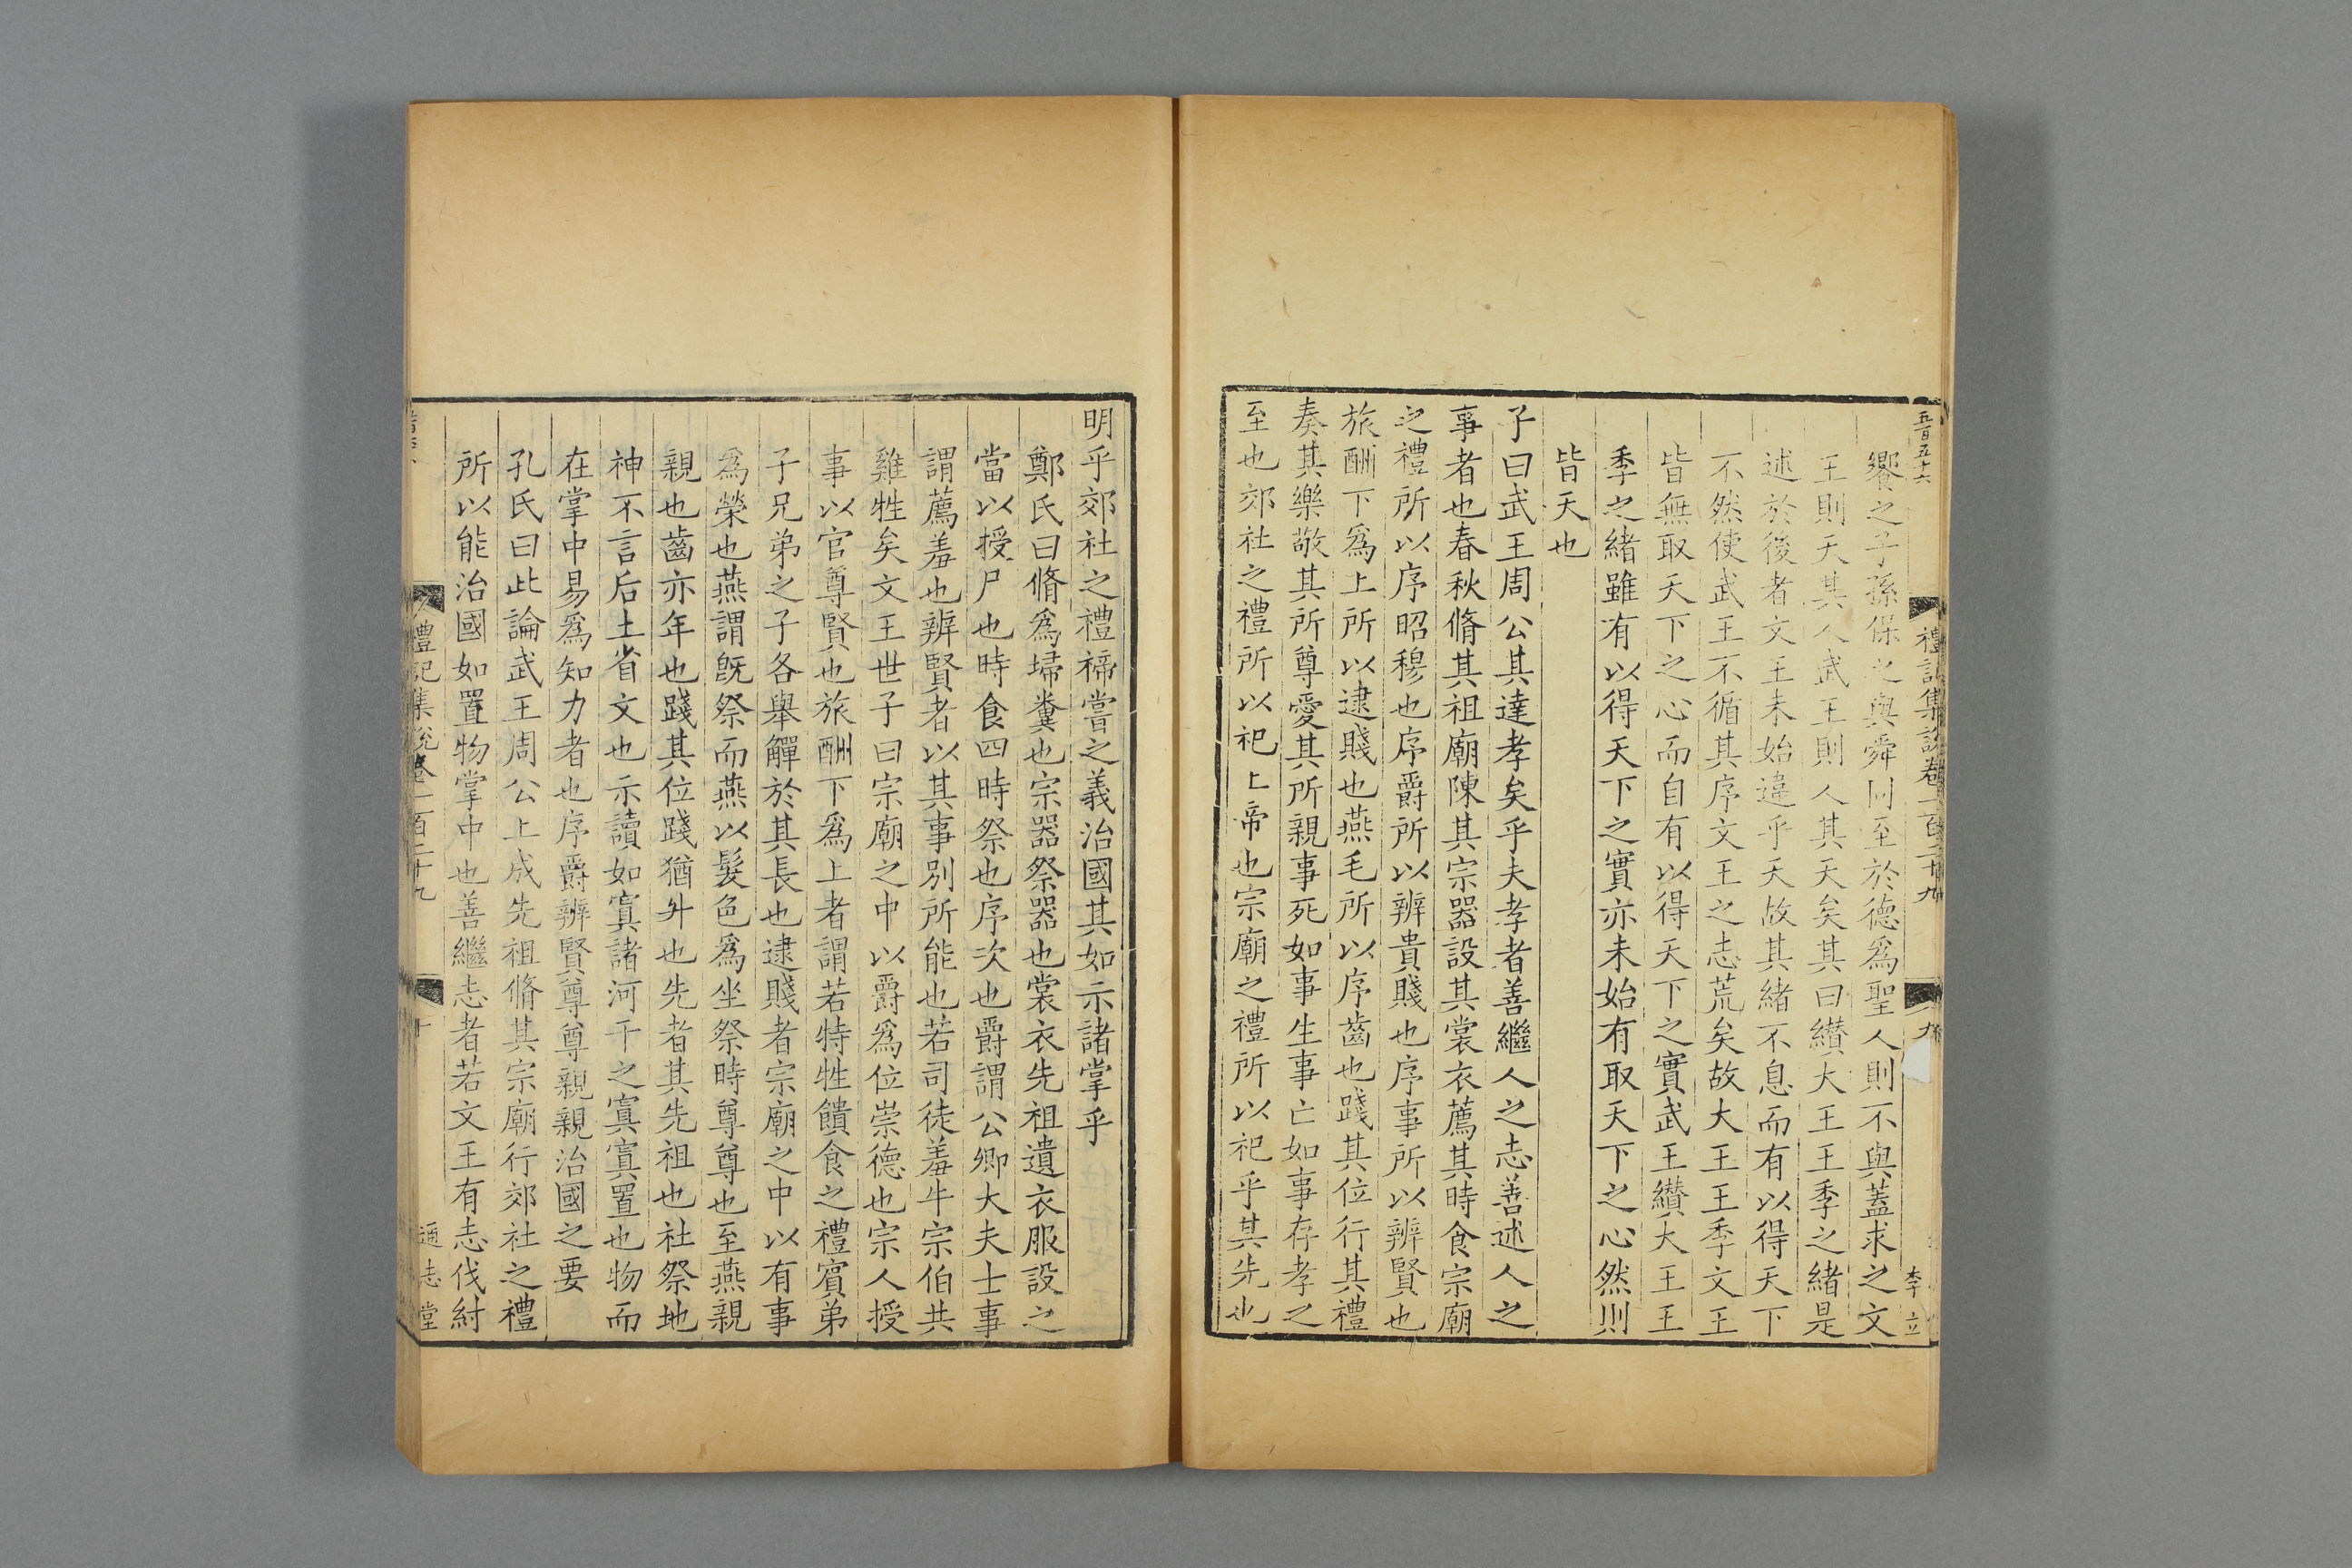 五百五十六
禮記集說卷一百二十九
九
李立
饗之子孫保之與舜同至於德爲聖人則不與蓋求之文
王則天其人武王則人其天矣其曰纘大王王季之緒是
述於後者文王未始違乎天故其緒不息而有以得天下
不然使武王不循其序文王之志荒矣故大王王季文王
皆無取天下之心而自有以得天下之實武王纘大王王
季之緒雖有以得天下之實亦未始有取天下之心然則
皆天也
子曰武王周公其達孝矣乎夫孝者善繼人之志善述人之
事者也春秋脩其祖廟陳其宗器設其裳衣薦其時食宗廟
之禮所以序昭穆也序爵所以辨貴賤也序事所以辨賢也
旅酬下爲上所以逮賤也燕毛所以序齒也踐其位行其禮
奏其樂敬其所尊愛其所親事死如事生事亡如事存孝之
至也郊社之禮所以祀上帝也宗廟之禮所以祀乎其先也
明乎郊社之禮禘嘗之義治國其如示諸掌乎
鄭氏曰脩爲埽糞也宗器祭器也裳衣先祖遺衣服設之
當以授尸也時食四時祭也序次也爵謂公卿大夫士事
謂薦羞也辨賢者以其事別所能也若司徒羞牛宗伯共
雞牲矣文王世子曰宗廟之中以爵爲位崇德也宗人授
事以官尊賢也旅酬下爲上者謂若特牲饋食之禮賓弟
子兄弟之子各舉觶於其長也逮賤者宗廟之中以有事
爲榮也燕謂旣祭而燕以髮色爲坐祭時尊尊也至燕親
親也齒亦年也踐其位踐猶升也先者其先祖也社祭地
神不言后土省文也示讀如寘諸河干之寘寘置也物而
在掌中易爲知力者也序爵辨賢尊尊親親治國之要
孔氏曰此論武王周公上成先祖脩其宗廟行郊社之禮
所以能治國如置物掌中也善繼志者若文王有志伐紂
禮記集說卷一百二十九
十
通志堂